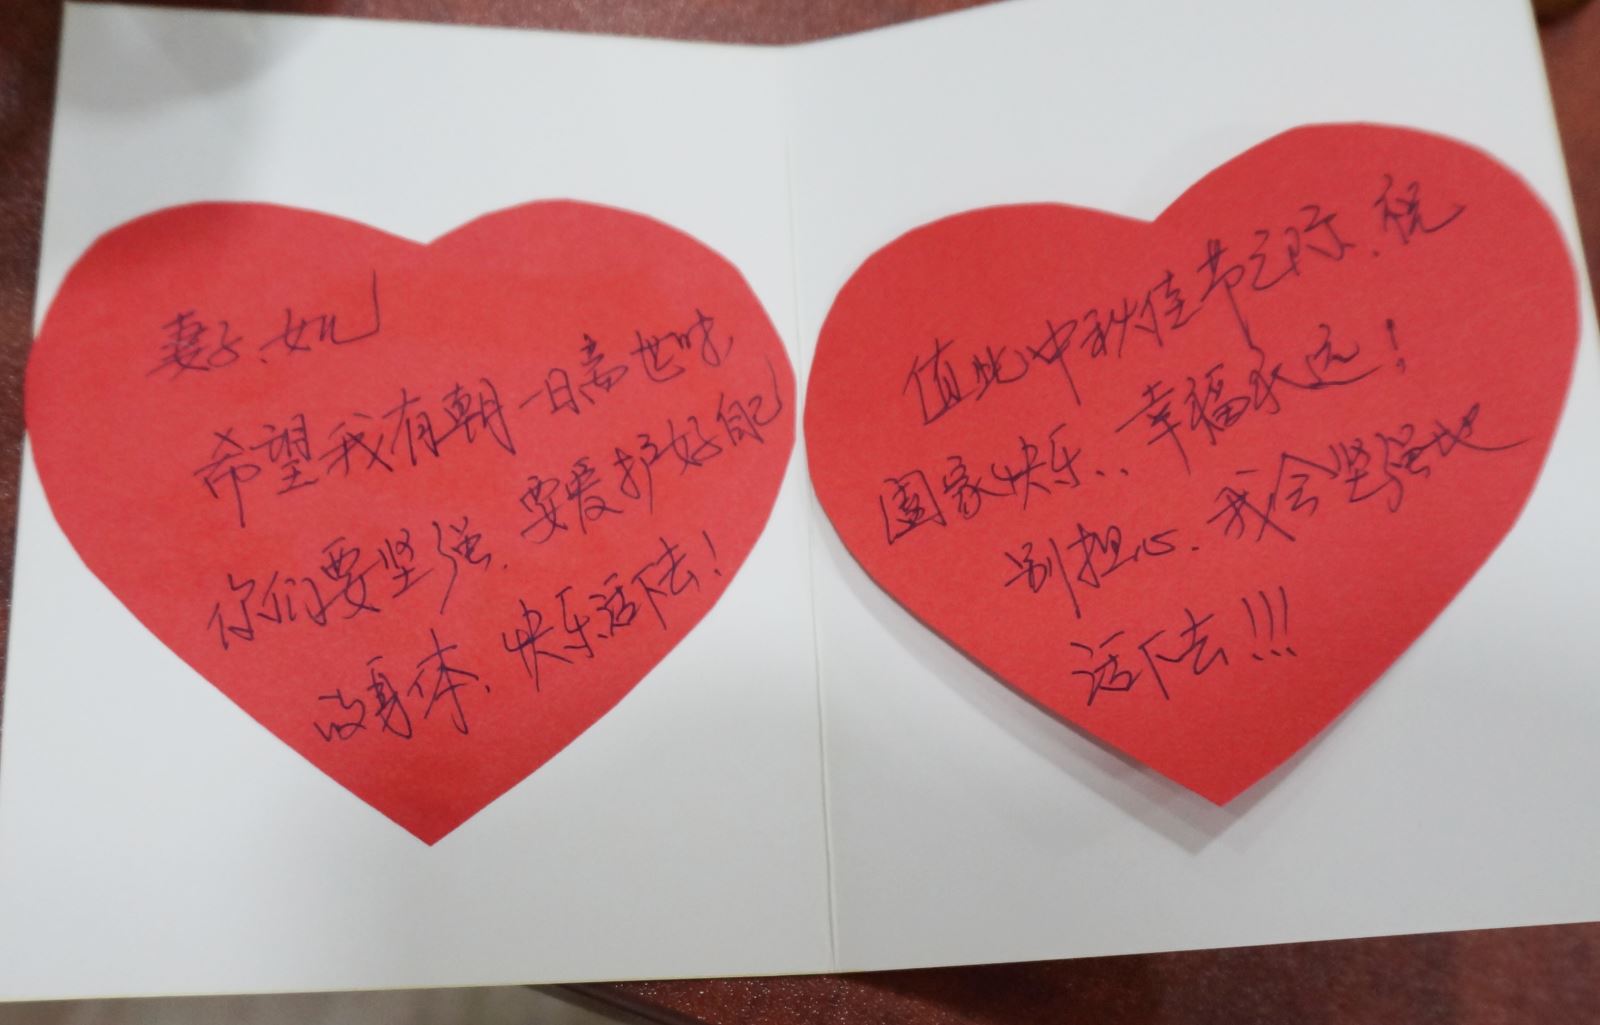 妻子、女儿
希望我有朝一日离世时,
你们要坚强、要爱护好自己
的身体、快乐活下去!
值此中秋佳节之际、祝
阖家快乐、、幸福永远!
别担心、我会坚强地
活下去!!!